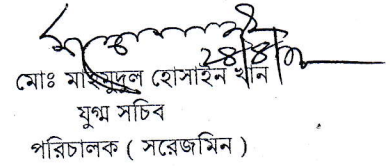 মোঃ মাহমুদুল হোসাইন খান
যুগ্ম সচিব
পরিচালক ( সরেজমিন )